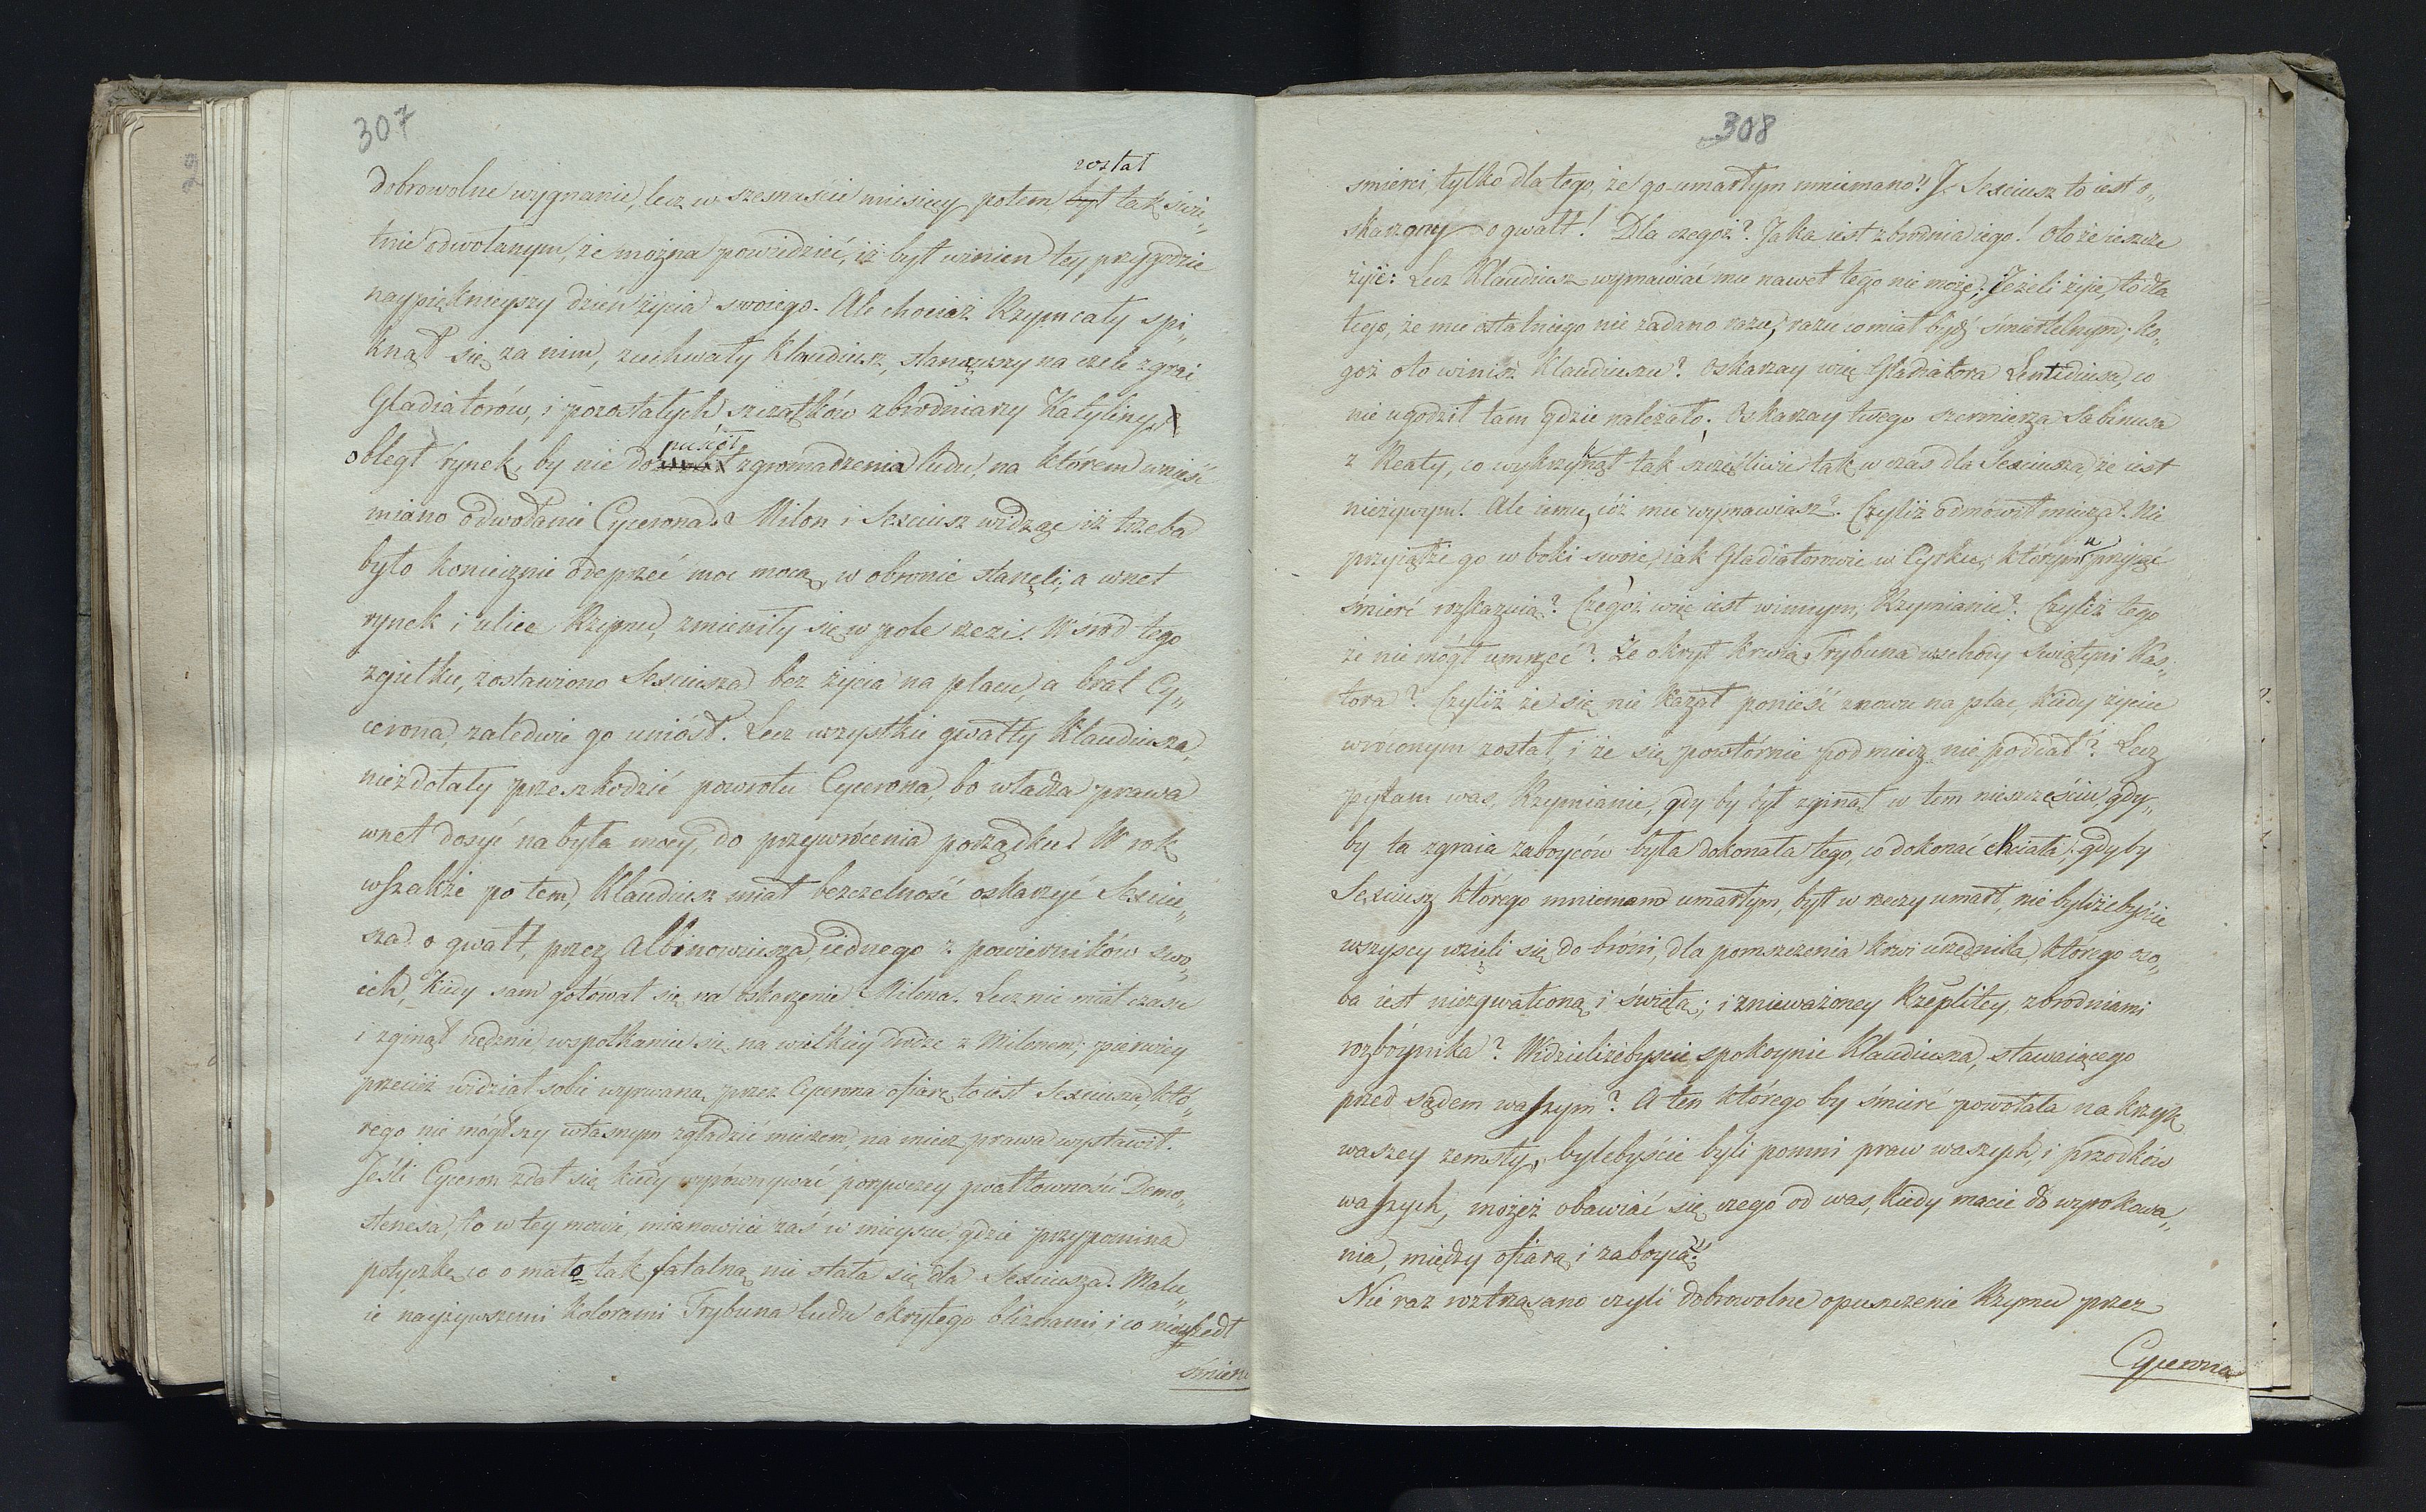 307
został
dobrowolne wygnanie, lecz w szesnaście miesięcy potem, był tak świe„
tnie odwołanym, że można powiedzieć, iż był winien tey przygodzie
naypięknieyszy dzień życia swoiego. Ale chociaż Rzym cały spi„
knął się za nim, zuchwały Klaudiusz, stanąwszy na czele zgrai
Gladiatorów, i pozostałych szczątków zbrodniarzy Katyliny,
puścić
obległ rynek, by nie do zgromadzenia ludu, na którem wnieść
miano odwołanie Cycerona. Milon i Sexciusz widząc iż trzeba
było koniecznie odeprzeć moc mocą, w obronie stanęli, a wnet
rynek i ulice Rzymu, zmieniły się w pole rzezi. Wśród tego
zgiełku, zostawiono Sexciusza bez życia na placu, a brat Cy„
cerona, zaledwie go uniósł. Lecz wszystkie gwałty Klaudiusza,
niezdołały przeszkodzić powrotu Cycerona, bo władza prawa
wnet dosyć nabyła mocy, do przywrócenia porządku. W rok
wszakże po tem, Klaudiusz miał bezczelność oskarżyć Sexciu„
sza o gwałt, przez Albinowiusza, iednego z powierników swo„
ich, kiedy sam gotował się na oskarżenie Milona. Lecz nie miał czasu
i zginął nędznie, wspotkaniu się na wielkiey drodze z Milonem; pierwiey
przecież widział sobie wyrwaną przez Cycerona ofiarę, to iest Sexciusza, któ„
rego nie mógłszy własnym zgładzić mieczem, na miecz prawa wystawił.
Jeśli Cyceron zdał się kiedy wyrównywać porywczey gwałtowności Demo„
stenesa, to w tey mowie, mianowicie zaś w mieyscu, gdzie przypomina
potyczkę, co o mało tak fatalną nie stała się dla Sexciusza. Malu„
ie nayżywszemi kolorami Trybuna ludu okrytego bliznami i co nieuszedł
śmierci
308
smierci, tylko dla tego, że go umarłym mniemano! I Sexciusz to iest o„
skarżony o gwałt! Dla czegoż? Jaka iest zbrodnia iego! Oto że ieszcze
żyie: Lecz Klaudiusz wymawiać mu nawet tego nie może; Jeżeli żyie, to dla
tego, że mu ostatniego nie zadano razu, razu co miał bydź śmiertelnym; Ko„
goż oto winisz Klaudiuszu? Oskarżay więc Gladiatora Lentidiusa, co
nie ugodził tam gdzie należało; Oskarżay twego szermierza Sabinusa
z Reaty, co wykrzyknął tak szczęśliwie tak w czas dla Sexciusza, że iest
nieżywym! Ale iemu, cóż mu wymawiasz? Czyliż odmówił miecza? Nie
przyiąłże go w boki swoie, iak Gladiatorowie w Cyrku, którym przyiąć
śmierć rozkazuią? Czegoż więc iest winnym, Rzymianie? Czyliż tego
że nie mógł umrzeć? Że okrył krwią Trybuna wschody Świątyni Kas„
tora? Czyliż że się nie kazał ponieść znowu na plac, kiedy życiu
wróconym został, i że się powtórnie pod miecz nie poddał? Lecz
pytam was, Rzymianie, gdy by był zginął w tem nieszczęściu, gdy„
by ta zgraia zaboyców była dokonała tego, co dokonać chciała; gdyby
Sexciusz którego mniemano umarłym, był w rzeczy umarł, nie bylżżebyście
wszyscy wzięli się do broni, dla pomszczenia krwi urzędnika, którego oso„
ba iest niezgwałconą i świętą; i znieważoney Rzeplitey, zbrodniami
rozbóynika? Widzieliżebyście spokoynie Klaudiusza, stawaiącego
przed sądem waszym? A ten którego by śmierć powołała na krzyk
waszey zemsty, bylebyście byli pomni praw waszych, i przodków
waszych, możeż obawiać się czego od was, kiedy macie do wyrokowa„
nia, między ofiarą i zaboycą?
Nie raz roztrząsano czyli dobrowolne opuszczenie Rzymu przez
Cycerona